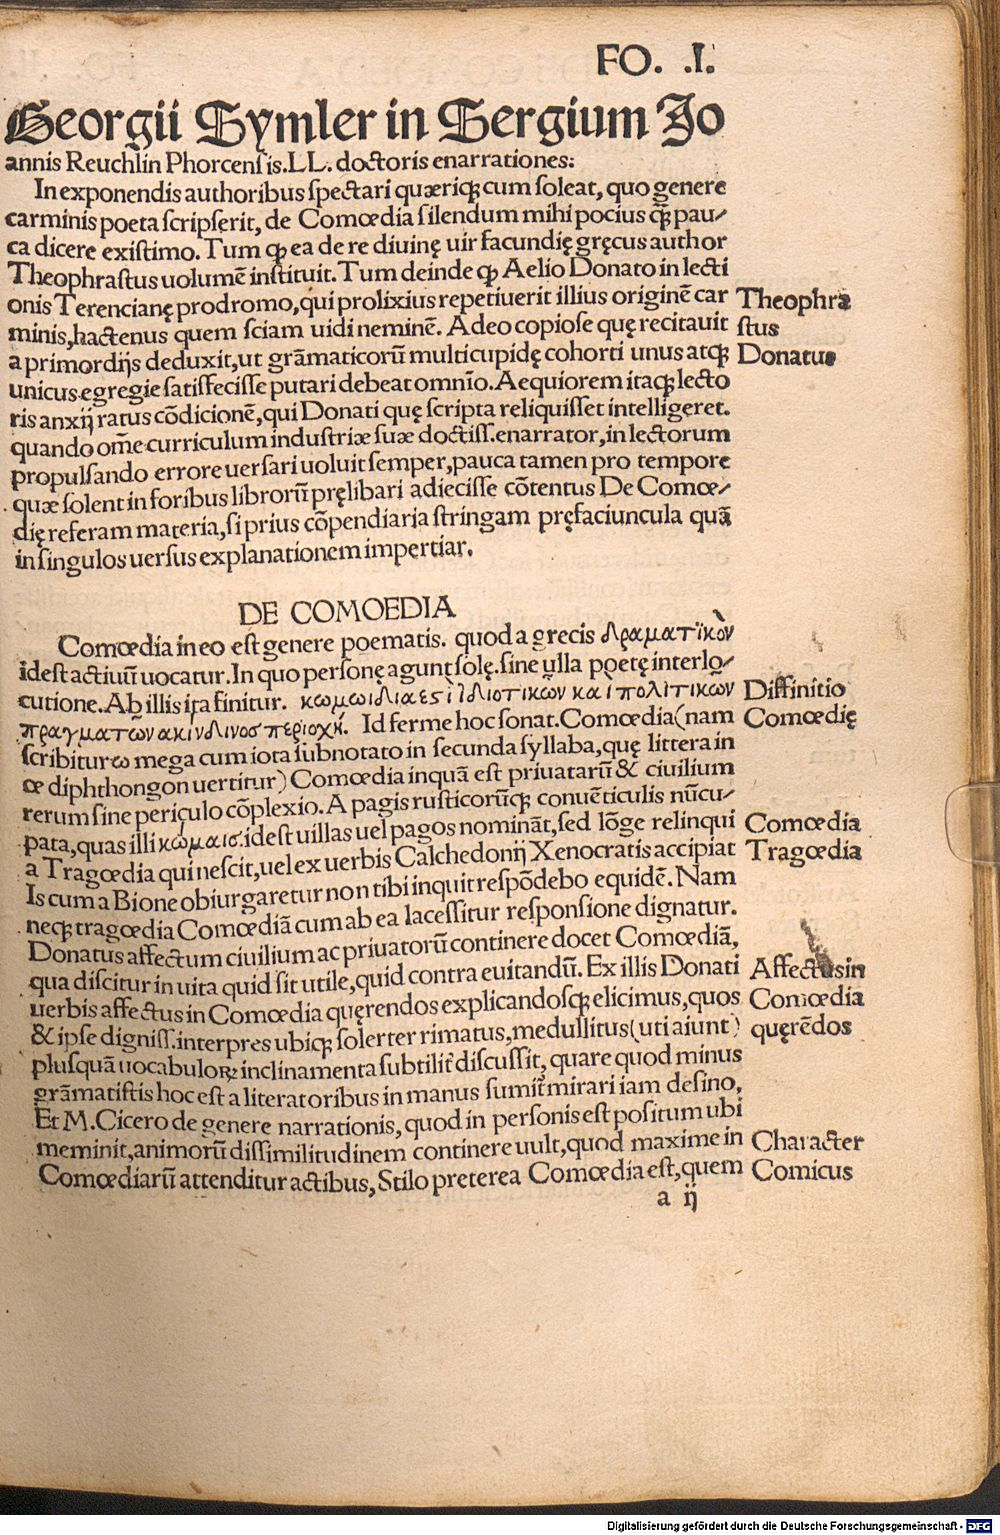 FO. .I.
Georgii Symler in Sergium Jo
annis Reuchlin Phorcenſis.LL. doctoris enarrationes:
In exponendis authoribus ſpectari quæriqꝫ cum ſoleat, quo genere
carminis poeta ſcripſerit, de Comœdia ſilendum mihi pocius ꝙ̃ pau⸗
ca dicere exiſtimo. Tum ꝙ ea de re diuinę uir facundię gręcus author
Theophraſtus uolumẽ inſtituit. Tum deinde ꝙ Aelio Donato in lecti
onis Terencianę prodromo, qui prolixius repetiuerit illius originẽ car
Theophra
minis, hactenus quem ſciam uidi neminẽ. Adeo copioſe quę recitauit
ſtus
a primordijs deduxit, ut grãmaticorũ multicupidę cohorti unus atqꝫ
Donatus
unicus egregie ſatiſfeciſſe putari debeat omnĩo. Aequiorem itaqꝫ lecto
ris anxij ratus cõdicionẽ, qui Donati quę ſcripta reliquiſſet intelligeret.
quando om̃e curriculum induſtriæ ſuæ doctiſſ. enarrator, in lectorum
propulſando errore uerſari uoluit ſemper, pauca tamen pro tempore
quæ ſolent in foribus librorũ pręlibari adieciſſe cõtentus De Comœ⸗
dię referam materia, ſi prius cõpendiaria ſtringam pręfaciuncula quã
in ſingulos uerſus explanationem impertiar.
DE COMOEDIA
Comœdia in eo eſt genere poematis. quod a grecis δραματϊκὸν
ideſt actiuũ uocatur. In quo perſonę agunt ſolę. ſine ulla poetę interlo⸗
cutione. Ab illis ita finitur. κωμωιδια εςὶ ἰδιοτικῶν και πολιτικῶν
Diffinitio
πραγματῶν ακίνδινοσ περιοχή. Id ferme hoc ſonat. Comœdia (nam
Comœdię
ſcribitur ω mega cum iota ſubnotato in ſecunda ſyllaba, quę littera in
œ diphthongon uertitur) Comœdia inquã eſt priuatarũ & ciuilium
rerum ſine periculo cõplexio. A pagis ruſticorũqꝫ conuẽticulis nũcu⸗
pata, quas illi κώμαισ. ideſt uillas uel pagos nominãt, ſed lõge relinqui
Comœdia
a Tragœdia qui neſcit, uel ex uerbis Calchedonij Xenocratis accipiat
Tragœdia
Is cum a Bione obiurgaretur non tibi inquit reſpõdebo equidẽ. Nam
neqꝫ tragœdia Comœdiã cum ab ea laceſſitur reſponſione dignatur.
Donatus affectum ciuilium ac priuatorũ continere docet Comœdiã,
qua diſcitur in uita quid ſit utile, quid contra euitandũ. Ex illis Donati
Affectus in
uerbis affectus in Comœdia quęrendos explicandoſqꝫ elicimus, quos
Comœdia
& ipſe digniſſ. interpres ubiqꝫ ſolerter rimatus, medullitus (uti aiunt)
quęrẽdos
pluſquã uocabuloꝝ inclinamenta ſubtilit̃ diſcuſſit, quare quod minus
grãmatiſtis hoc eſt a literatoribus in manus ſumit̃ mirari iam deſino,
Et M. Cicero de genere narrationis, quod in perſonis eſt poſitum ubi
meminit, animorũ diſſimilitudinem continere uult, quod maxime in
Character
Comœdiarũ attenditur actibus, Stilo preterea Comœdia eſt, quem
Comicus
a ij
Digitalisierung gefördert durch die Deutsche Forschungsgemeinschaft - DFG